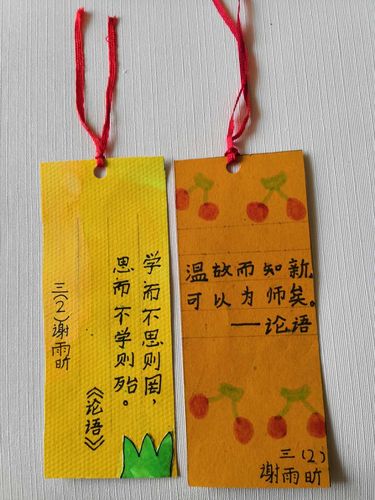 学而不思则罔，
思而不学则殆。
《论语》
三(2)谢雨昕
温故而知新,
可以为师矣。
——论语
三(2)
谢雨昕